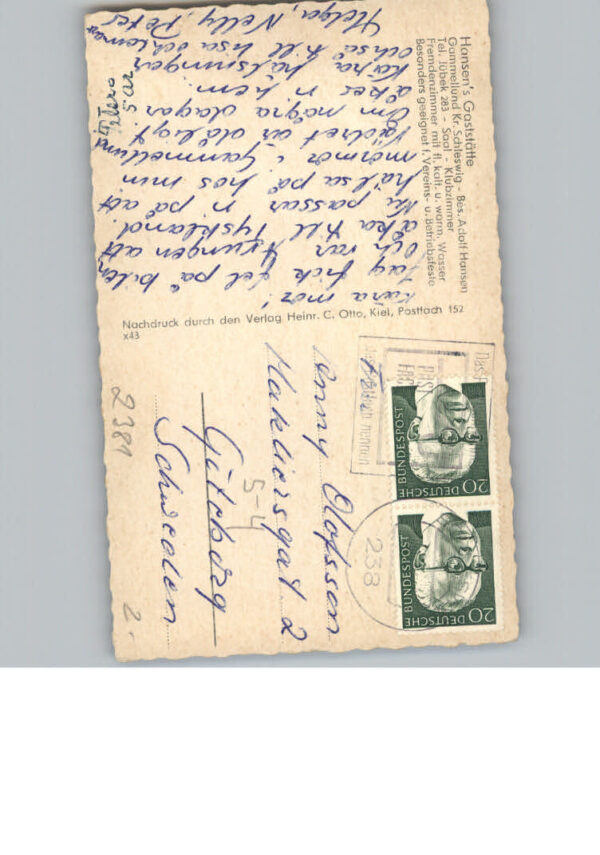 Hansen's Gaststätte
Gammellund Kr. Schleswig - Bes. Adolf Hansen
Tel. Jübek 283 - Saal - Klubzimmer
Fremdenzimmer mit fl. kalt. u. warm. Wasser
Besonders geeignet f. Vereins- u. Betriebsfeste
Kära mor!
Jag fick fel på bilen
och var tvungen att
åka till Tyskland.
Nu passar n på att
hälsa på hos min
mormor i Gammellund
Vädret är dåligt
Om några dagar
åker n hem.
Kära hälsningar
också till Lisa och
Helga, Nelly, Peter
Nachdruck durch den Verlag Heinr. C. Otto, Kiel, Postfach 152
x43
Fru
Anny Olofsson
Maklersgat. 2
Göteborg
Schweden
5-4
2381
2.
238
20 DEUTSCHE BUNDESPOST
20 DEUTSCHE BUNDESPOST